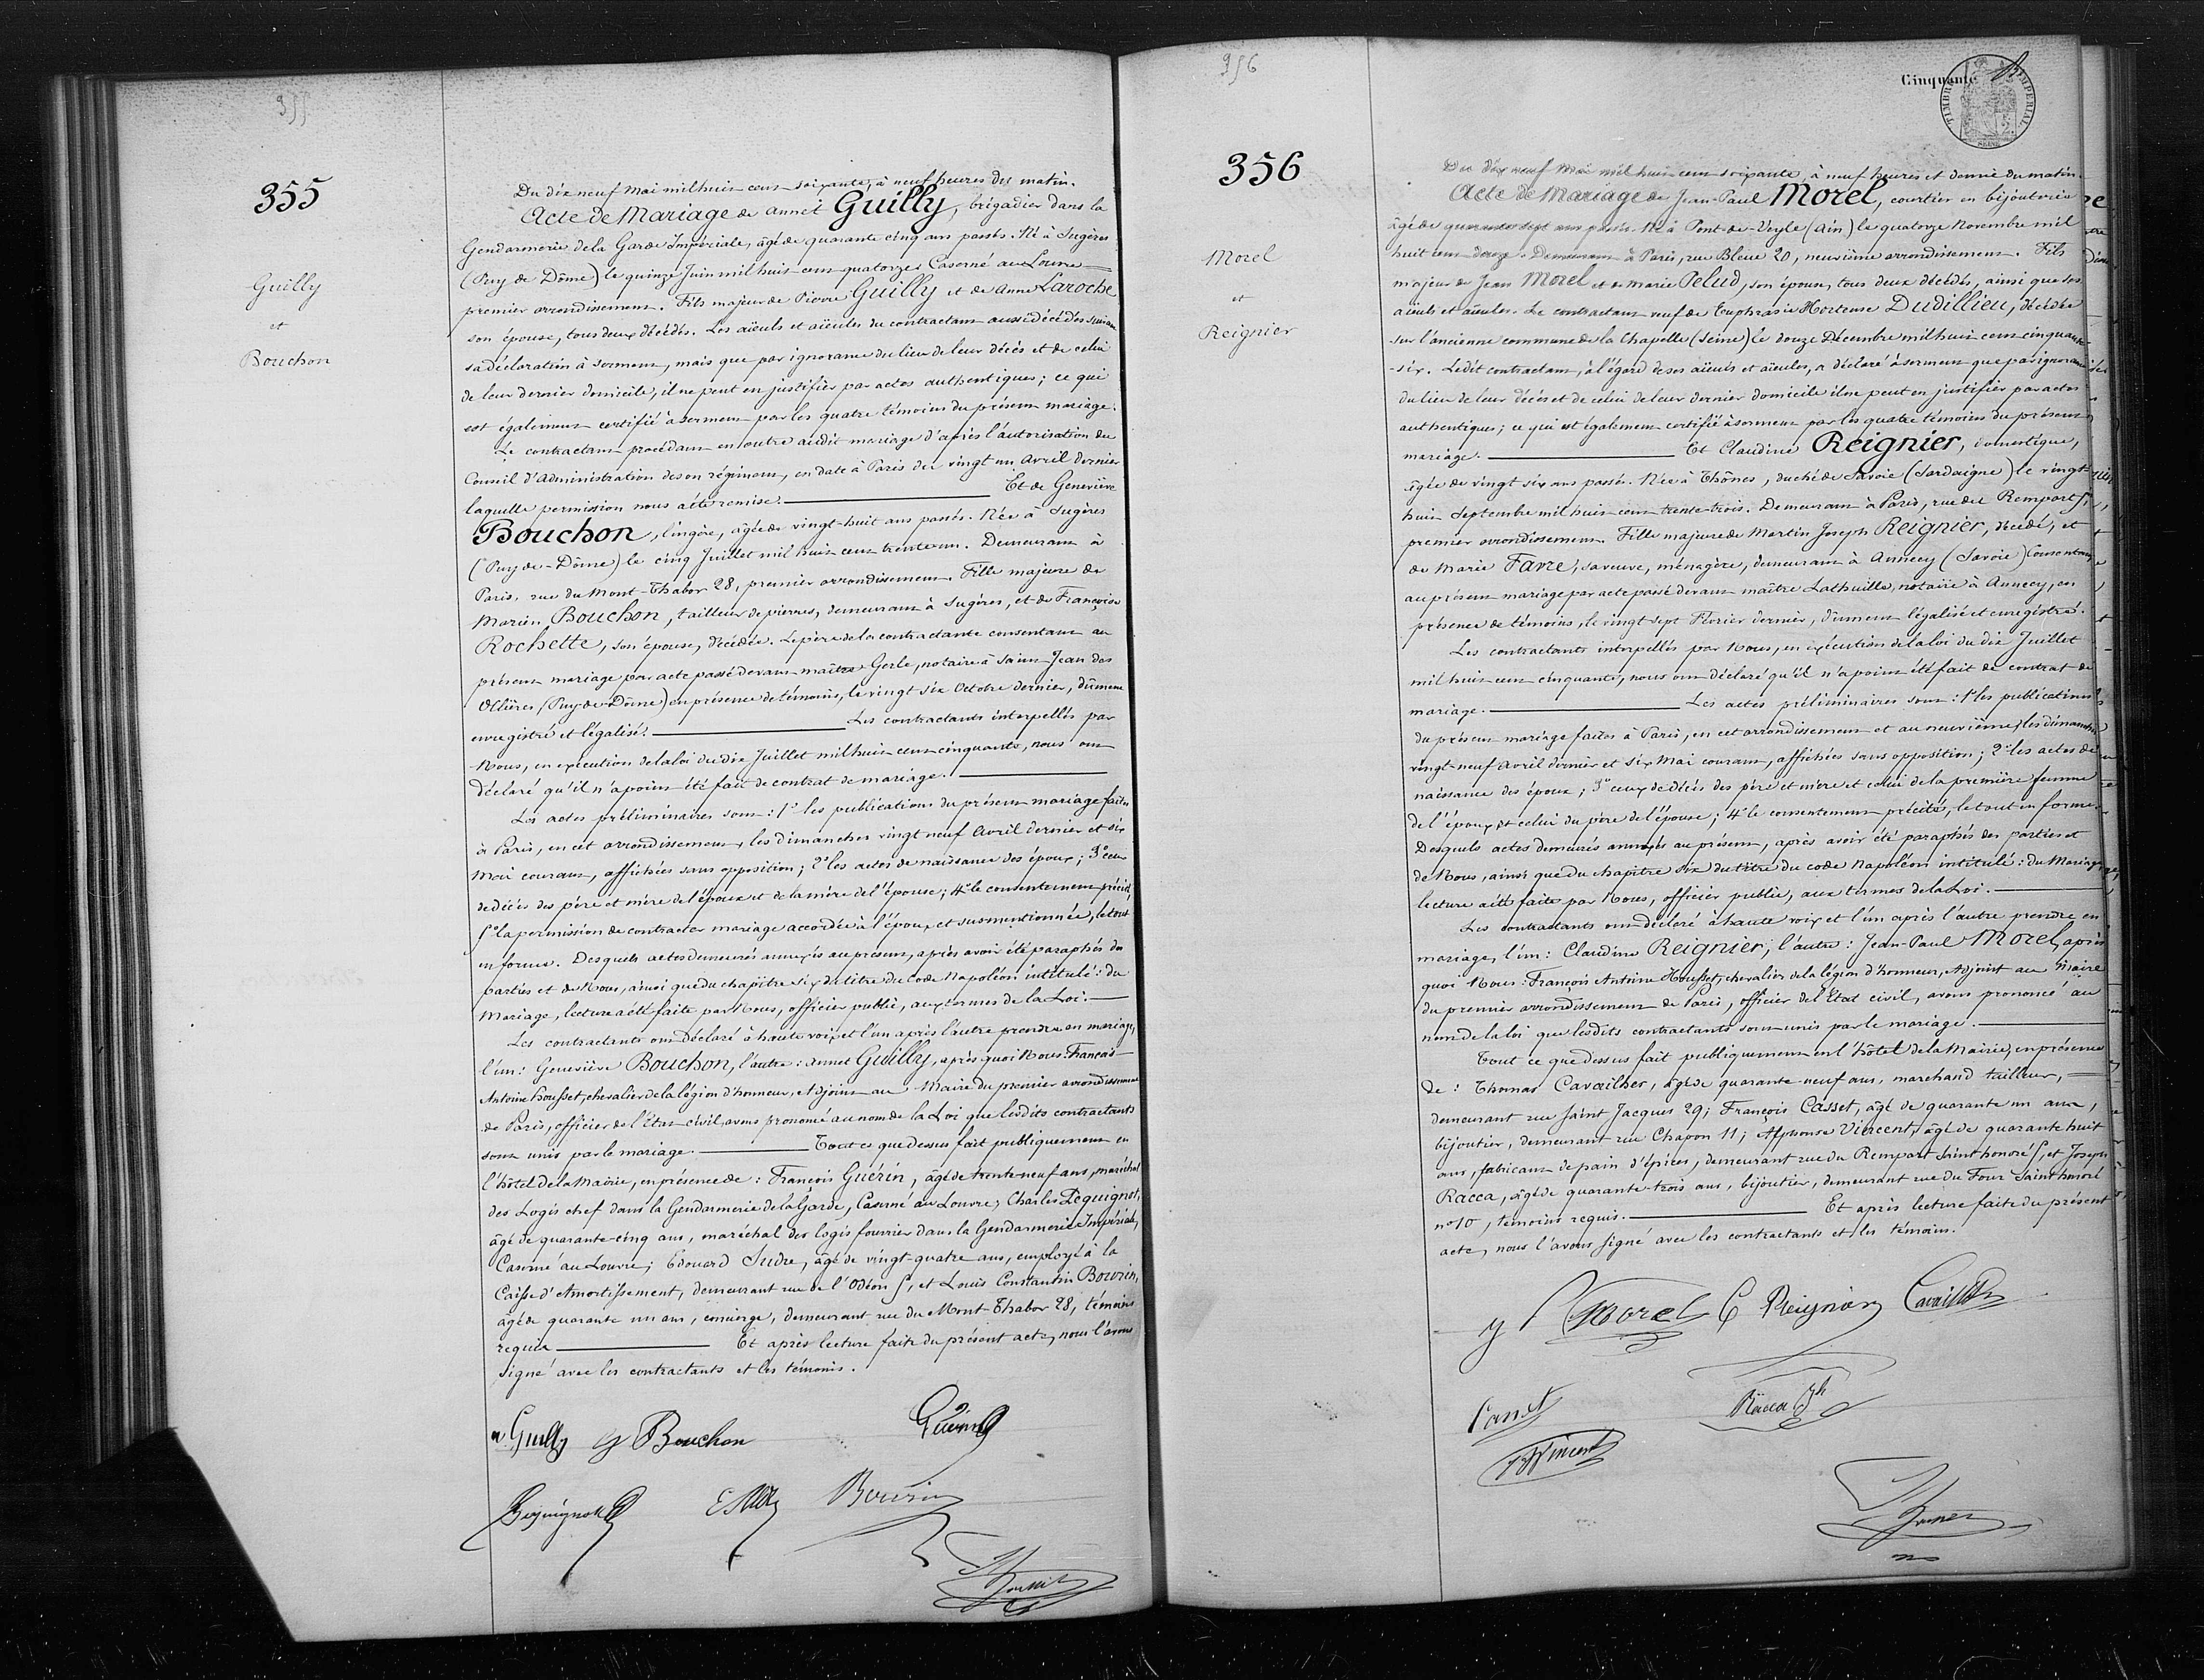 355
355
Guilly
et
Bouchon
Du dix neuf Mai mil huit cent soixante, à neuf heures du matin.
Acte de Mariage de Annet Guilly, brigadier dans la
Gendarmerie de la Garde Impériale, âgé de quarante cinq ans passés. Né à Sugères
(Puy de Dôme) le quinze Juin mil huit cent quatorze, Caserné au Louvre
premier arrondissement. Fils majeur de Pierre Guilly et de Anne Laroche
son épouse, tous deux décédés. Les aïeuls et aïeules du contractant aussi décédés suivant
sa déclaration à serment, mais que par ignorance du lieu de leur décès et de celui
de leur dernier domicile, il ne peut en justifier par actes authentiques; ce qui
est également certifié à serment par les quatre témoins du présent mariage.
Le contractant procédant en outre audit mariage d'après l'autorisation du
Conseil d'Administration de son régiment, en date à Paris du vingt un Avril dernier
laquelle permission nous a été remise. Et de Geneviève
Bouchon, lingère, âgée de vingt-huit ans passés. Née à Sugères
(Puy-de-Dôme) le cinq Juillet mil huit cent trente un. Demeurant à
Paris, rue du Mont-Thabor 28, premier arrondissement. Fille majeure de
Marien Bouchon, tailleur de pierres, demeurant à Sugères, et de Françoise
Rochette, son épouse, décédée. Le père de la contractante consentant au
présent mariage par acte passé devant maître Gerle, notaire à Saint Jean des
Ollières (Puy-de-Dôme) en présence de témoins, le vingt six Octobre dernier, dûment
enregistré et légalisé. Les contractants interpellés par
Nous, en exécution de la loi du dix Juillet mil huit cent cinquante, nous ont
déclaré qu'il n'a point été fait de contrat de mariage.
Les actes préliminaires sont: 1° les publications du présent mariage faites
à Paris, en cet arrondissement, les dimanches vingt neuf Avril dernier et six
Mai courant, affichées sans opposition; 2° les actes de naissance des époux; 3° ceux
de décès des père et mère de l'époux et de la mère de l'épouse; 4° le consentement précité,
5° la permission de contracter mariage accordée à l'époux et susmentionnée, le tout
en forme. Desquels actes demeurés annexés au présent, après avoir été paraphés des
parties et de Nous, ainsi que du chapitre six du titre du Code Napoléon intitulé: du
Mariage, lecture a été faite par Nous, officier public, aux termes de la Loi.
Les contractants ont déclaré à haute voix et l'un après l'autre prendre en mariage,
l'un: Geneviève Bouchon, l'autre: Annet Guilly, après quoi Nous: François
Antoine Housset, chevalier de la légion d'honneur, Adjoint au Maire du premier arrondissement
de Paris, officier de l'Etat civil, avons prononcé au nom de la Loi que lesdits contractants
sont unis par le mariage. Tout ce que dessus fait publiquement en
l'hôtel de la Mairie, en présence de: François Guérin, âgé de trente-neuf ans, maréchal
des Logis chef dans la Gendarmerie de la Garde, Caserné au Louvre; Charles Pequignot,
âgé de quarante-cinq ans, maréchal des logis fourrier dans la Gendarmerie Impériale,
Caserné au Louvre; Edouard Sudre, âgé de vingt-quatre ans, employé à la
Caisse d'Amortissement, demeurant rue de l'Odéon 5, et Louis Constantin Bourin,
âgé de quarante un ans, concierge, demeurant rue du Mont-Thabor 28, témoins
requis Et après lecture faite du présent acte, nous l'avons
signé avec les contractants et les témoins.
a Guilly g Bouchon Guérin
Pequignot Bourin
Housset
356
356
Cinquante
TIMBRE IMPERIAL
SEINE
Morel
et
Reignier
Du dix neuf Mai mil huit cent soixante, à neuf heures et demie du matin.
Acte de Mariage de Jean-Paul Morel, courtier en bijouterie
âgé de quarante sept ans passés. Né à Pont-de-Veyle (Ain) le quatorze Novembre mil
huit cent douze. Demeurant à Paris, rue Bleue 20, neuvième arrondissement. Fils
majeur de Jean Morel et de Marie Pelud, son épouse, tous deux décédés, ainsi que ses
aïeuls et aïeules. Le contractant veuf de Euphrasie Hortense Dudillieu, décédée
sur l'ancienne commune de la Chapelle (Seine) le douze Décembre mil huit cent cinquante
-six. Ledit contractant, à l'égard de ses aïeuls et aïeules, a déclaré à serment que par ignorance
du lieu de leur décès et de celui de leur dernier domicile il ne peut en justifier par actes
authentiques; ce qui est également certifié à serment par les quatre témoins du présent
mariage. Et Claudine Reignier, domestique,
âgée de vingt six ans passés. Née à Thônes, duché de Savoie (Sardaigne) le vingt-
huit Septembre mil huit cent trente-trois. Demeurant à Paris, rue du Rempart 5,
premier arrondissement. Fille majeure de Martin Joseph Reignier, décédé, et
de Marie Favre, sa veuve, ménagère, demeurant à Annecy (Savoie) Consentant
au présent mariage par acte passé devant maître Lathuille, notaire à Annecy, en
présence de témoins, le vingt sept Février dernier, dûment légalisé et enregistré.
Les contractants interpellés par Nous, en exécution de la loi du dix Juillet
mil huit cent cinquante, nous ont déclaré qu'il n'a point été fait de contrat de
mariage. Les actes préliminaires sont: 1° les publications
du présent mariage faites à Paris, en cet arrondissement et au neuvième, les dimanches
vingt-neuf Avril dernier et six Mai courant, affichées sans opposition; 2° les actes de
naissance des époux; 3° ceux de décès des père et mère et celui de la première femme
de l'époux et celui du père de l'épouse; 4° le consentement précité, le tout en forme.
Desquels actes demeurés annexés au présent, après avoir été paraphés des parties et
de Nous, ainsi que du chapitre six du titre du code Napoléon intitulé: du Mariage,
lecture a été faite par Nous, officier public, aux termes de la Loi.
Les contractants ont déclaré à haute voix et l'un après l'autre prendre en
mariage, l'un: Claudine Reignier; l'autre: Jean-Paul Morel, après
quoi Nous: François Antoine Housset, chevalier de la légion d'honneur, Adjoint au Maire
du premier arrondissement de Paris, officier de l'Etat civil, avons prononcé au
nom de la loi que lesdits contractants sont unis par le mariage.
Tout ce que dessus fait publiquement en l'hôtel de la Mairie, en présence
de: Thomas Cavailher, âgé de quarante-neuf ans, marchand tailleur,
demeurant rue Saint Jacques 29; François Casset, âgé de quarante un ans,
bijoutier, demeurant rue Chapon 11; Alphonse Vincent, âgé de quarante huit
ans, fabricant de pain d'épices, demeurant rue du Rempart Saint honoré 5, et Joseph
Racca, âgé de quarante-trois ans, bijoutier, demeurant rue du Four Saint honoré
n° 10, témoins requis. Et après lecture faite du présent
acte, nous l'avons signé avec les contractants et les témoins.
Morel C Reignier Cavailher
Racca Jh
Vincent